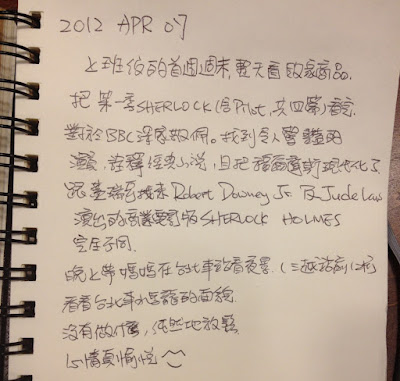 2012 APR 07
上班後的首週週末, 整天看敗家商品.
把第一季SHERLOCK(含Pilot, 共四集)看完.
對於BBC深感敬佩。找到令人驚豔的
演員, 詮釋經典小說, 且把福爾摩斯現代化了
跟蓋瑞奇找來Robert Downey Jr. 及Jude Law
演出的商業電影版SHERLOCK HOLMES
完全不同.
晚上帶媽媽在台北車站看夜景.(三越站前
看看台北車水馬龍的面貌.
沒有做什麼, 純然地放鬆
心情真愉悅